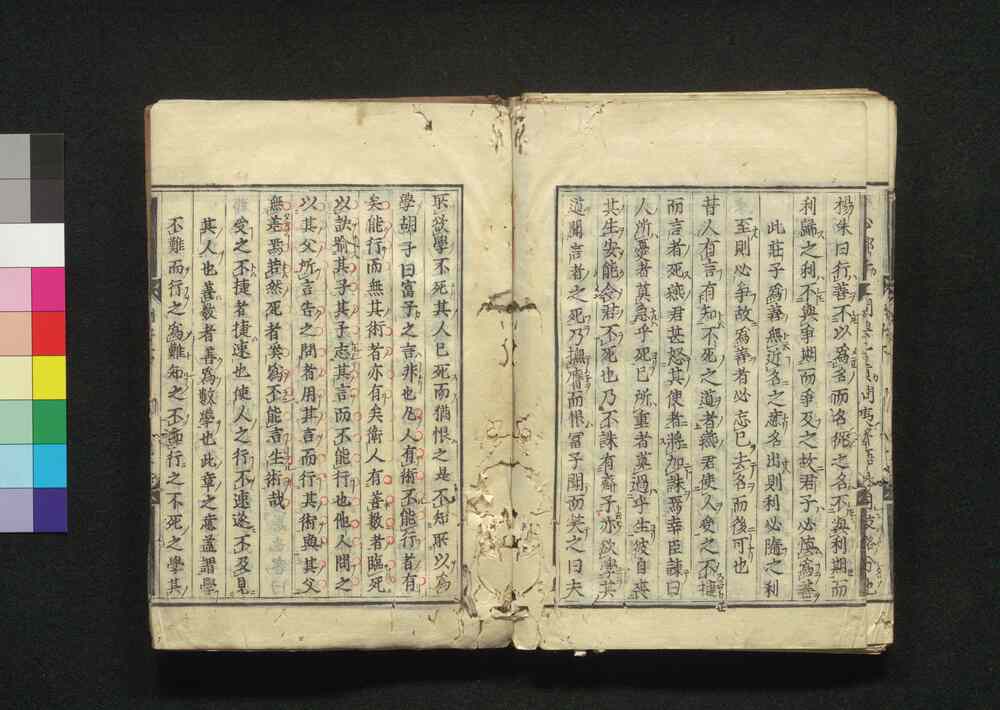 楊朱曰行善不以為名而名從之名不與利期而
利歸之利不與爭期而爭及之故君子必慎為善
此莊子為善無近名之意名出則利必隨之利
至則必爭故為善者必忘已去名而後可也
昔人有言有知不死之道者燕君使人受之不捷
而言者死燕君甚怒其使者將加誅焉幸臣諫曰
人所憂者莫急乎死已所重者莫過乎生彼自喪
其生安能令君不死也乃不誅有齊子亦欲學其
道聞言者之死乃撫膺而恨富子聞而笑之曰夫
所欲學不死其人已死而猶恨之是不知所以為
學胡子曰富子之言非也凡人有術不能行者有
矣能行而無其術者亦有矣衛人有善數者臨死
以訣喻其子其子志其言而不能行也他人問之
以其父所言告之問者用其言而行其術與其父
無差焉若然死者奚為不能言生術哉
受之不捷者捷速也使人之行不速遂不及見
其人也善數者善為數學也此章之意蓋謂學
不難而行之為難知之不而行之不死之學其